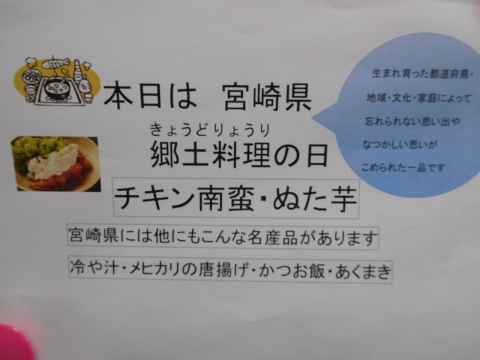 本日は 宮崎県
きょうどりょうり
郷土料理の日
チキン南蛮・ぬた芋
宮崎県には他にもこんな名産品があります
冷や汁・メヒカリの唐揚げ・かつお飯・あくまき
生まれ育った都道府県・
地域・文化・家庭によって
忘れられない思い出や
なつかしい思いが
こめられた一品です